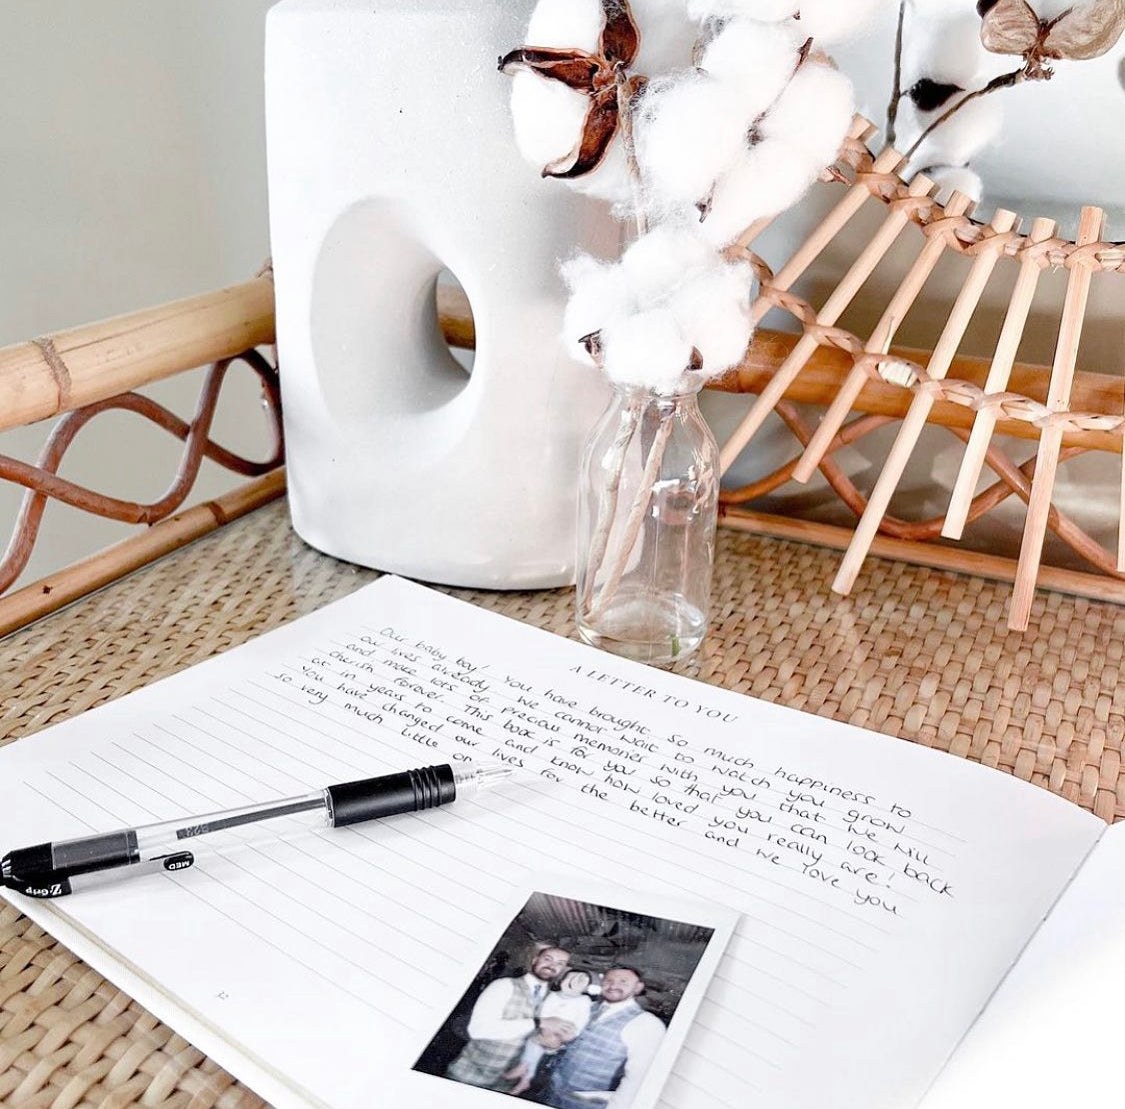 A LETTER TO YOU
Our baby boy! You have brought so much happiness to
our lives already. We cannot wait to watch you grow
and make lots of precious memories with you that we will
cherish forever. This book is for you so that you can look back
at in years to come and know how loved you really are!
You have changed our lives for the better and we love you
so very much little on
32
Z-Grip
MED